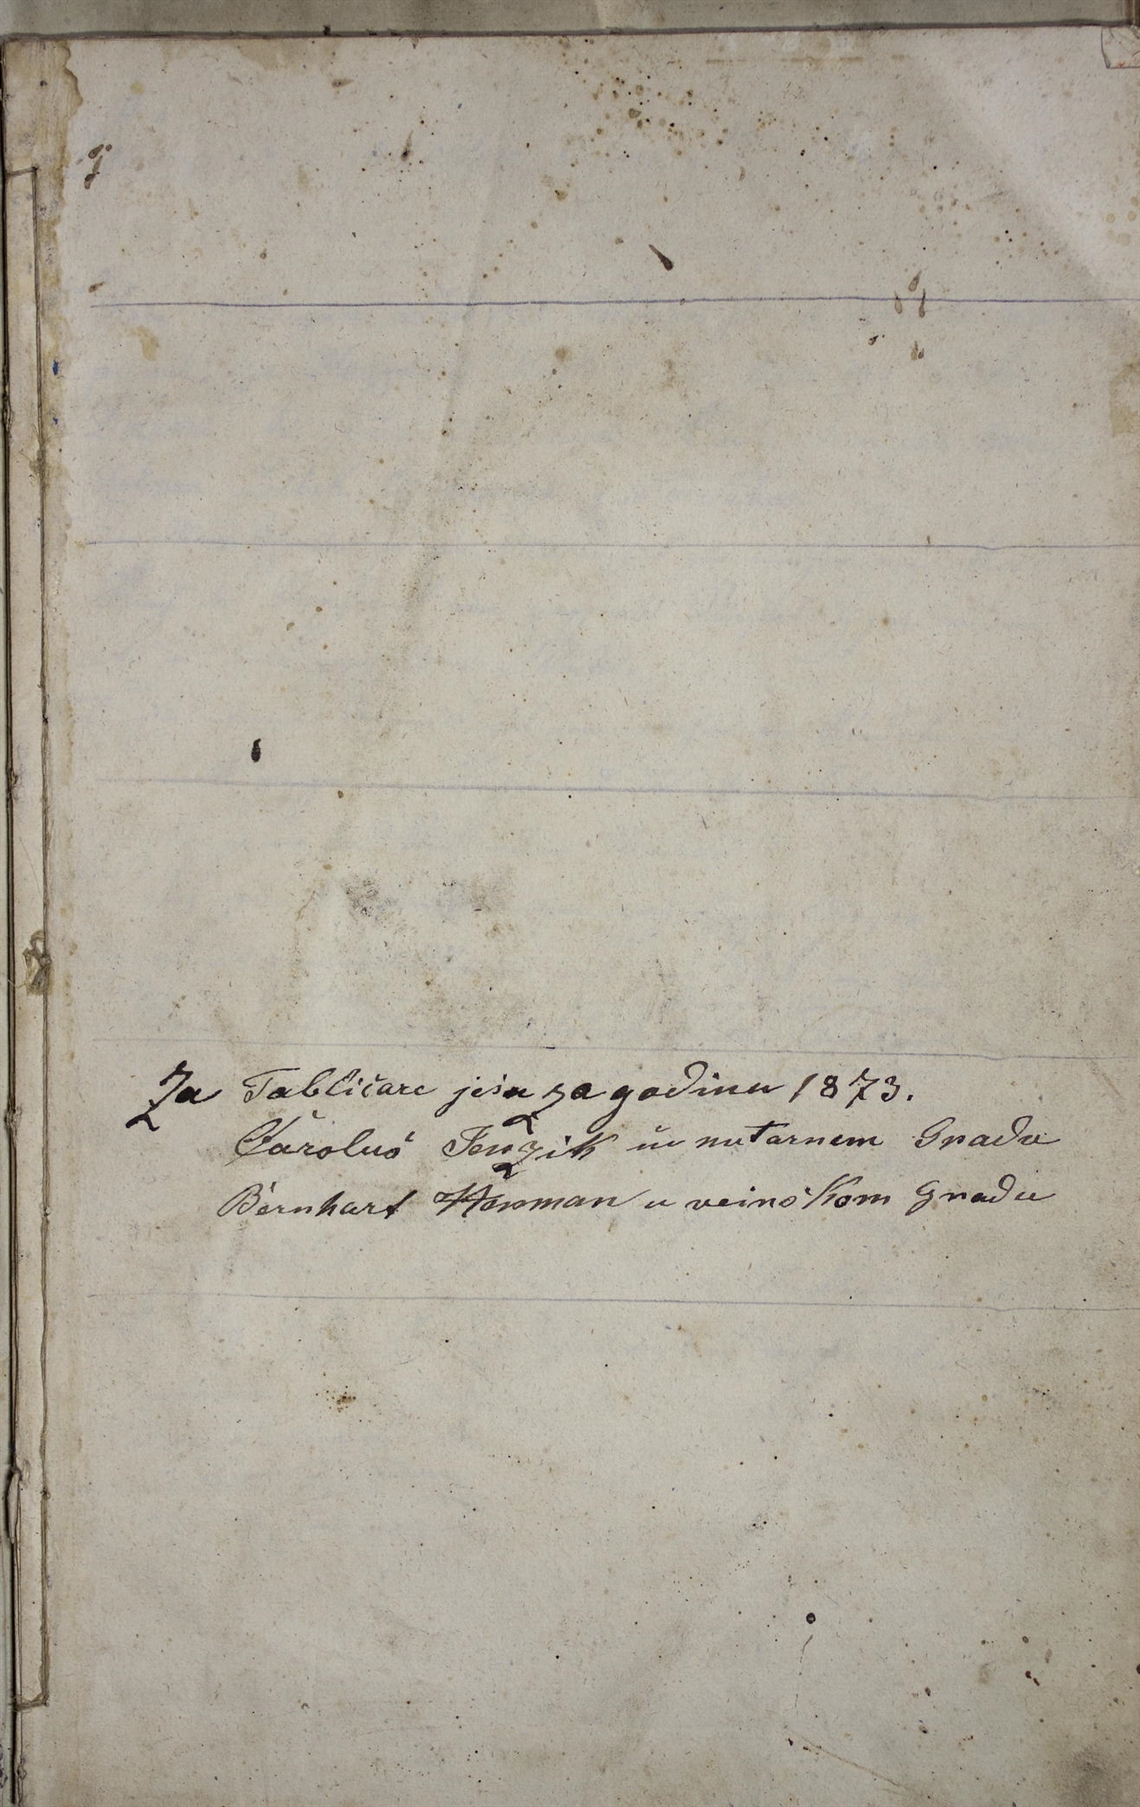 Za Tabličare jesu za godinu 1873.
Carolus Fenzik u nutarnem Gradu
Bernhart Herman u veinskom Gradu